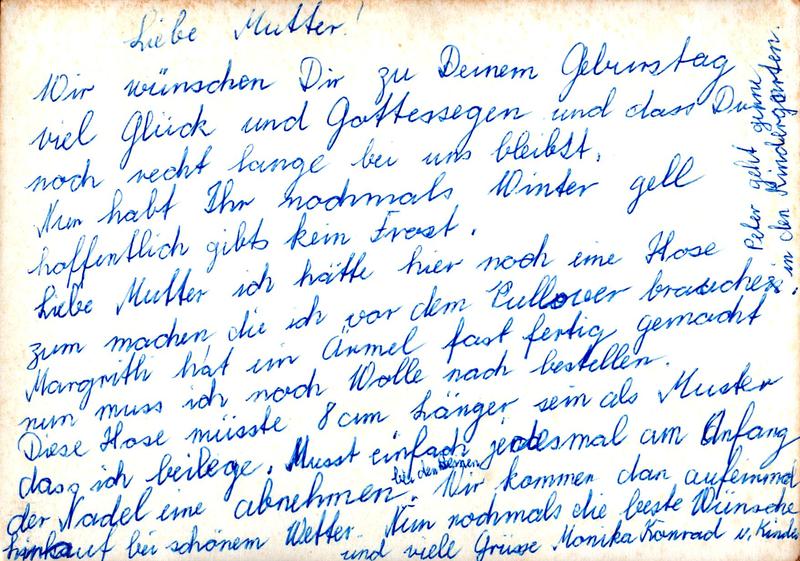 Liebe Mutter!
Wir wünschen Dir zu Deinem Geburstag
viel Glück und Gottessegen und dass Du
noch recht lange bei uns bleibst.
Nun habt Ihr nochmals Winter gell
hoffentlich gibts kein Frost.
Liebe Mutter ich hätte hier noch eine Hose
zum machen die ich vor dem Pullover brauche
Margrith hat ein Ärmel fast fertig gemacht
nun muss ich noch Wolle nach bestellen.
Diese Hose müsste 8 cm Länger sein als Muster
dass ich beilege. Musst einfach jedesmal am Anfang
bei den Beinen
der Nadel eine abnehmen. Wir kommen dan aufeinmal
auf bei schönem Wetter. Nun nochmals die beste Wünsche
und viele Grüsse Monika Konrad u. Kinder
Peter geht gerne
in den Kindergarten.